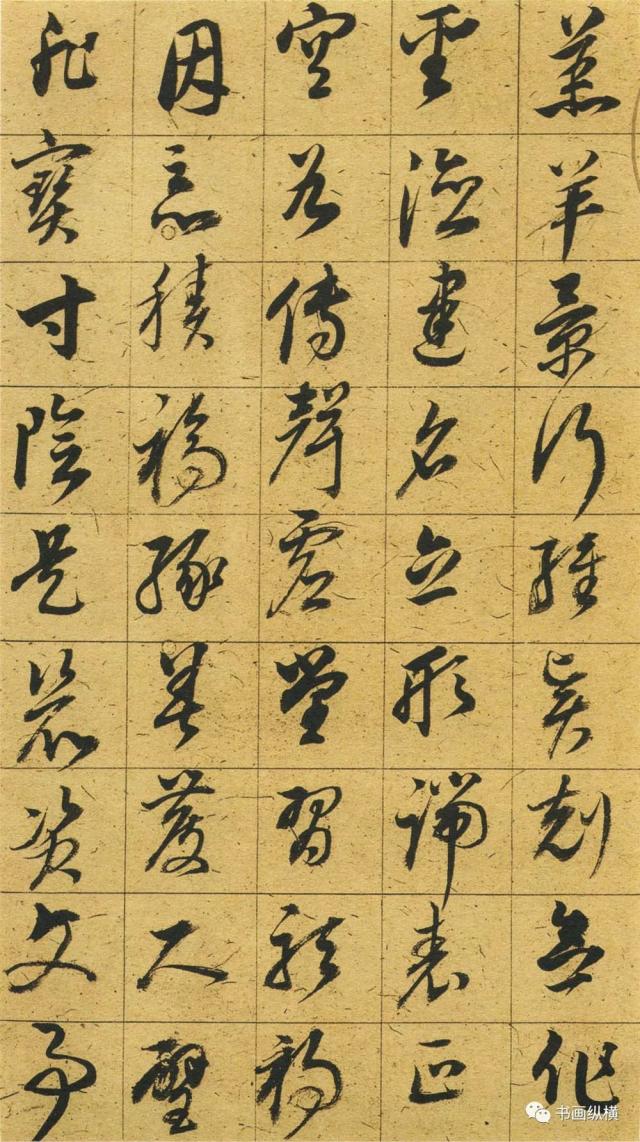 羔羊景行維賢剋念作
聖德建名立形端表正
空谷傳聲虛堂習聽禍
因惡積福緣善慶尺璧
非寶寸陰是競資父事
书画纵横